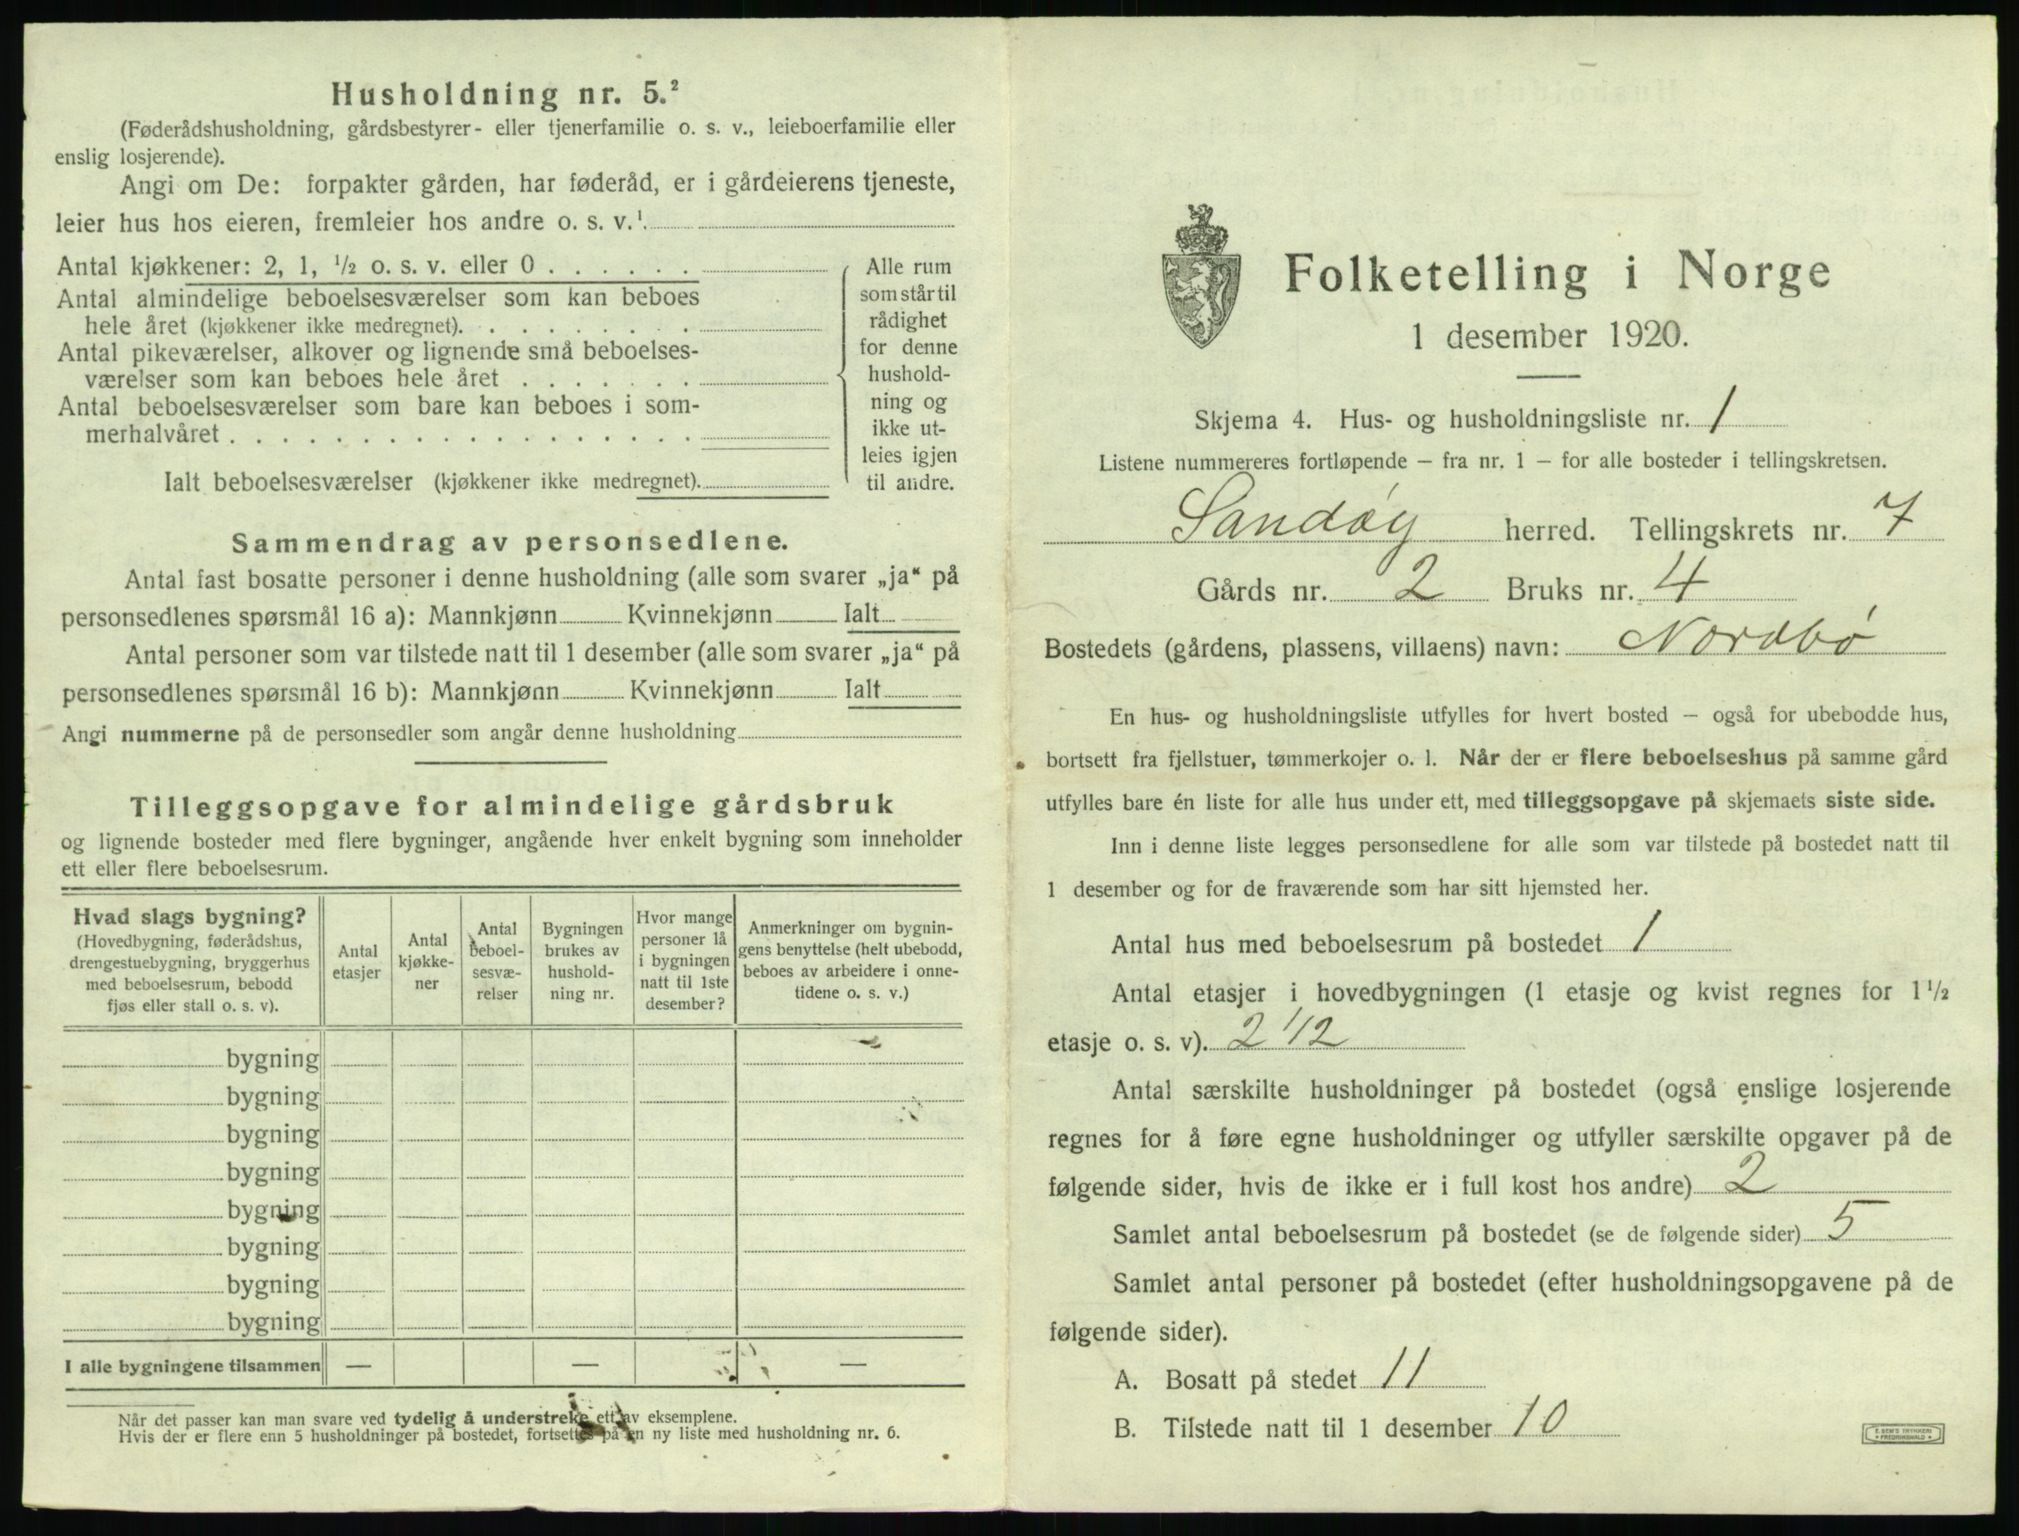 Husholdning nr. 5.²
(Føderådshusholdning, gårdsbestyrer- eller tjenerfamilie o. s. v., leieboerfamilie eller
enslig losjerende).
Angi om De: forpakter gården, har føderåd, er i gårdeierens tjeneste,
leier hus hos eieren, fremleier hos andre o. s. v.¹
Antal kjøkkener: 2, 1, ½ o. s. v. eller 0 . . . . . .
Antal almindelige beboelsesværelser som kan beboes
hele året (kjøkkener ikke medregnet). . . . . . . . .
Antal pikeværelser, alkover og lignende små beboelses-
værelser som kan beboes hele året . . . . . . .
Antal beboelsesværelser som bare kan beboes i som-
merhalvåret . . . . . . . . . . . . . . . . . .
Ialt beboelsesværelser (kjøkkener ikke medregnet).
Alle rum
som står til
rådighet
for denne
hushold-
ning og
ikke ut-
leies igjen
til andre.
Sammendrag av personsedlene.
Antal fast bosatte personer i denne husholdning (alle som svarer „ja“ på
personsedlenes spørsmål 16 a): Mannkjønn Kvinnekjønn Ialt
Antal personer som var tilstede natt til 1 desember (alle som svarer „ja“ på
personsedlenes spørsmål 16 b): Mannkjønn Kvinnekjønn Ialt
Angi nummerne på de personsedler som angår denne husholdning
Tilleggsopgave for almindelige gårdsbruk
og lignende bosteder med flere bygninger, angående hver enkelt bygning som inneholder
ett eller flere beboelsesrum.
Hvad slags bygning?
(Hovedbygning, føderådshus,
drengestuebygning, bryggerhus
med beboelsesrum, bebodd
fjøs eller stall o. s. v).
Antal
etasjer
Antal
kjøkke-
ner
Antal
beboel-
sesvæ-
relser
Bygningen
brukes av
hushold-
ning nr.
Hvor mange
personer lå
i bygningen
natt til 1ste
desember?
Anmerkninger om bygnin-
gens benyttelse (helt ubebodd,
beboes av arbeidere i onne-
tidene o. s. v.)
bygning
bygning
bygning
bygning
bygning
bygning
bygning
bygning
I alle bygningene tilsammen — — —
Når det passer kan man svare ved tydelig å understreke ett av eksemplene.
Hvis der er flere enn 5 husholdninger på bostedet, fortsettes på en ny liste med husholdning nr. 6.
Folketelling i Norge
1 desember 1920.
Skjema 4. Hus- og husholdningsliste nr. 1
Listene nummereres fortløpende — fra nr. 1 — for alle bosteder i tellingskretsen.
Sandøy herred. Tellingskrets nr. 7
Gårds nr. 2 Bruks nr. 4
Bostedets (gårdens, plassens, villaens) navn: Nordbø
En hus- og husholdningsliste utfylles for hvert bosted — også for ubebodde hus,
bortsett fra fjellstuer, tømmerkojer o. l. Når der er flere beboelseshus på samme gård
utfylles bare én liste for alle hus under ett, med tilleggsopgave på skjemaets siste side.
Inn i denne liste legges personsedlene for alle som var tilstede på bostedet natt til
1 desember og for de fraværende som har sitt hjemsted her.
Antal hus med beboelsesrum på bostedet 1
Antal etasjer i hovedbygningen (1 etasje og kvist regnes for 1½
etasje o. s. v). 2 1/2
Antal særskilte husholdninger på bostedet (også enslige losjerende
regnes for å føre egne husholdninger og utfyller særskilte opgaver på de
følgende sider, hvis de ikke er i full kost hos andre) 2
Samlet antal beboelsesrum på bostedet (se de følgende sider) 5
Samlet antal personer på bostedet (efter husholdningsopgavene på de
følgende sider).
A. Bosatt på stedet 11
B. Tilstede natt til 1 desember 10
E. SEM'S TRYKKERI
FREDRIKSHALD